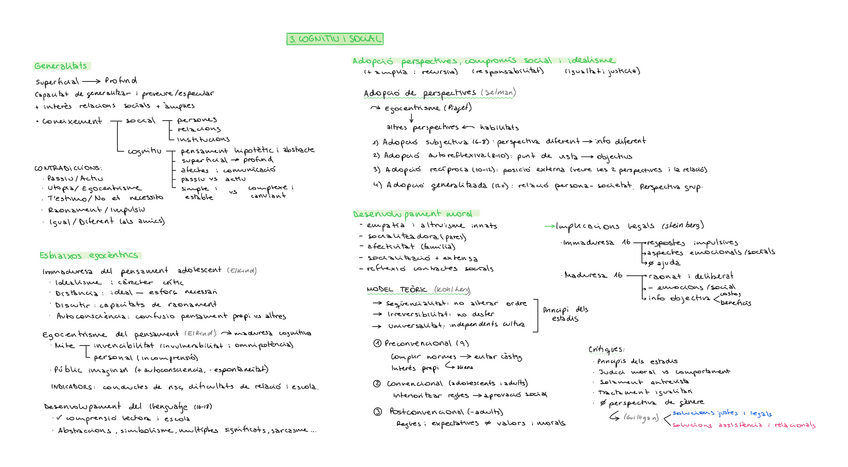 3. COGNITIU i SOCIAL
Generalitats
Superficial → Profund
Capacitat de generalitzar i preveure/especular
+ interès relacions socials + àmplies
• Coneixement
social
persones
relacions
institucions
cognitiu
pensament hipotètic i abstracte
superficial → profund
afectes i comunicació
passiu vs actiu
simple i estable vs complexe i canviant
CONTRADICCIONS:
· Passiu/Actiu
· Utopia/Egocentrisme
· T'estimo/No et necessito
· Raonament/Impulsiu
· Igual/Diferent (als amics)
Esbiaixos egocèntrics
Immaduresa del pensament adolescent (Elkind)
· Idealisme i caràcter crític
· Distància: ideal — esforç necessari
· Discutir: capacitats de raonament
· Autoconsciència: confusió pensament propi vs altres
Egocentrisme del pensament (Elkind) → maduresa cognitiva
· Mite
invencibilitat (invulnerabilitat i omnipotència)
personal (incomprensió)
· Públic imaginari (+ autoconsciència, - espontaneïtat)
INDICADORS: conductes de risc, dificultats de relació i escola.
Desenvolupament del llenguatge (16-18)
· ✓ comprensió lectora i escola
· Abstraccions, simbolisme, múltiples significats, sarcasme...
Adopció perspectives, compromís social i idealisme
(+ àmplia i recursiva) (responsabilitat) (igualtat i justícia)
Adopció de perspectives (Selman)
→ egocentrisme (Piaget)
altres perspectives ← habilitats
1) Adopció subjectiva (6-8): perspectiva diferent → info diferent
2) Adopció autoreflexiva (8-10): punt de vista → objectius
3) Adopció recíproca (10-12): posició externa (veure les 2 perspectives i la relació)
4) Adopció generalitzada (12,15): relació persona-societat. Perspectiva grup.
Desenvolupament moral
- empatia i altruisme innats
- socialitzadora (pares)
- afectivitat (família)
- socialització + extensa
- reflexió contactes socials
MODEL TEÒRIC (Kohlberg)
→ Seqüencialitat: no alterar ordre
→ Irreversibilitat: no desfer
→ Universalitat: independents cultura
Principi dels estadis
① Preconvencional (9)
Complir normes → evitar càstig
Interès propi
② Convencional (adolescents i adults)
Interioritzar regles → aprovació social
③ Postconvencional (-adults)
Regles i expectatives ≠ valors i morals
→ Implicacions legals (Steinberg)
· Immaduresa 16
→ respostes impulsives
→ aspectes emocionals/socials
→ ø ajuda
· Maduresa 16
→ raonat i deliberat
→ - emocions/social
→ info objectiva
costos
beneficis
Crítiques:
· Principis dels estadis
· Judici moral vs comportament
· Solament entrevista
· Tractament igualitari
· ø perspectiva de gènere
↳ (Gilligan)
Solucions justes i legals
Solucions assistència i relacionals